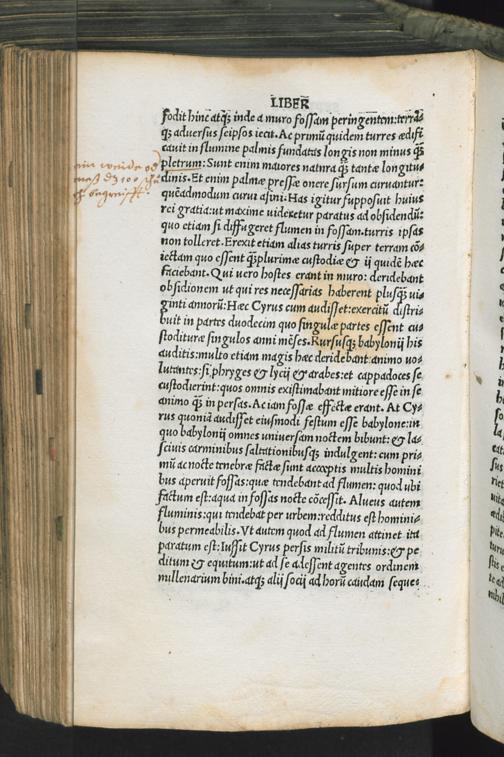 LIBER
fodit hinc atq; inde a muro fossam peringentem: terrã
q; adversus seipsos iecit. Ac primũ quidem turres ædifi
cauit in flumine palmis fundatas longis non minus q̃
pletrum: Sunt enim maiores natura q̃ tantæ longitu
dinis. Et enim palmæ pressæ onere sursum curuantur:
quẽadmodum curui asini. Has igitur supposuit huius
rei gratia: ut maxime uideretur paratus ad obsidendũ:
quo etiam si diffugeret flumen in fossam. turris ipsas
non tolleret. Erexit etiam alias turris super terram cõ
iectam quo essent q̃plurimæ custodiæ & ij quidẽ hæc
faciebant. Qui uero hostes erant in muro: deridebant
obsidionem ut qui res necessarias haberent plusq̃ ui
ginti annorũ: Hæc Cyrus cum audisset: exercitũ distri
buit in partes duodecim quo singulæ partes essent cu
stodituræ singulos anni mẽses. Rursusq; babylonij his
auditis: multo etiam magis hæc deridebant: animo uo
lutantes: si phryges & lycij & arabes: et cappadoces se
custodierint: quos omnis existimabant mitiore esse in se
animo q̃ in persas. Ac iam fossæ effectæ erant. At Cy
rus quoniã audisset eiusmodi festum esse babylone: in
quo babylonij omnes universam noctem bibunt: & la
sciuis carminibus saltationibusq; indulgent: cum pri
mũ ac nocte tenebræ factæ sunt acceptis multis homini
bus aperuit fossas: quæ tendebant ad flumen: quod ubi
factum est: aqua in fossas nocte cõcessit. Alueus autem
fluminis: qui tendebat per urbem: redditus est homini
bus permeabilis. Vt autem quod ad flumen attinet ita
paratum est: Iussit Cyrus persis militũ tribunis: & pe
ditum & equitum: ut ad se adessent agentes ordinem
millenarium bini. atq; alij socij ad horũ caudam seque